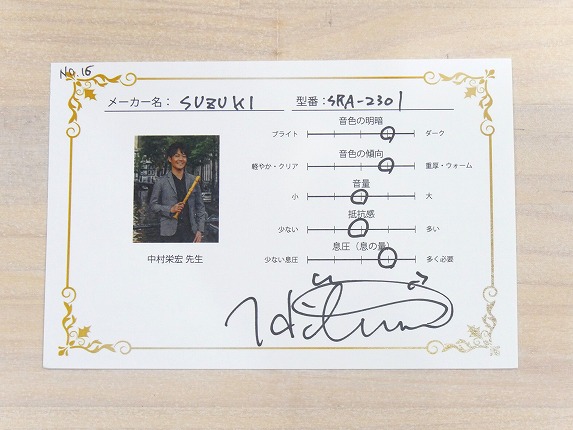 NO.16
メーカー名： SUZUKI 型番：SRA-2301
音色の明暗
ブライト ダーク
音色の傾向
軽やか・クリア 重厚・ウォーム
音量
小 大
抵抗感
少ない 多い
息圧（息の量）
少ない息圧 多く必要
中村栄宏 先生